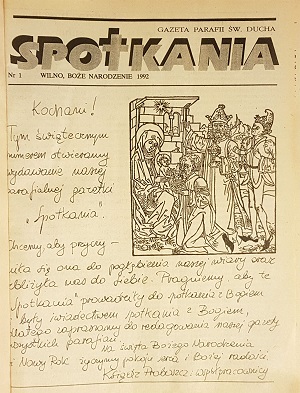 GAZETA PARAFII ŚW. DUCHA
SPOTKANIA
Nr 1 WILNO, BOŻE NARODZENIE 1992
Kochani!
Tym świątecznym
numerem otwieramy
wydawanie naszej
parafialnej gazetki
"Spotkania".
Chcemy, aby przyczy-
niła się ona do pogłębienia naszej wiary oraz
zbliżyła nas do siebie. Pragniemy aby te
"Spotkania" prowadziły do spotkania z Bogiem
i były świadectwem spotkania z Bogiem,
dlatego zapraszamy do redagowania naszej gazety
wszystkich parafian.
Na święta Bożego Narodzenia
i Nowy Rok życzymy pokoju serca i Bożej radości.
Ksiądz Proboszcz i współpracownicy